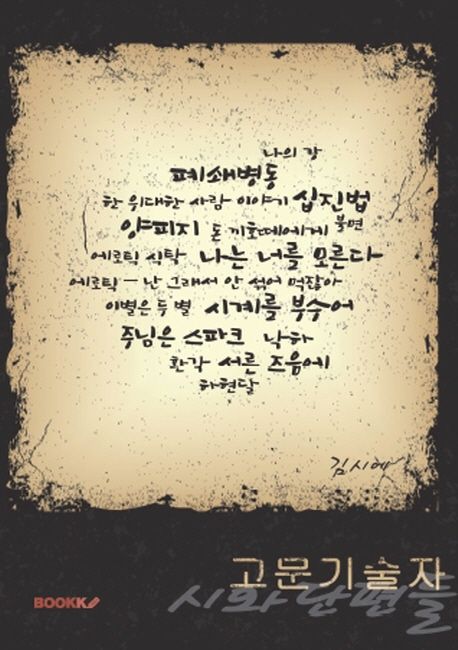 나의 강
폐쇄병동
한 위대한 사람 이야기 십진법
양피지 돈 끼호떼에게 불면
에로틱 식탁 나는 너를 모른다
에로틱 - 난 그래서 안 섞어 먹잖아
이별은 두 별 시계를 부수어
주님은 스파크 낙하
환각 서른 즈음에
하현달
김시에
고문기술자
시와 단편들
BOOKK